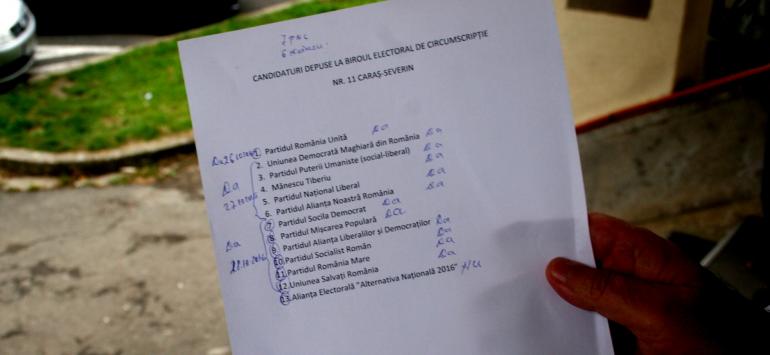 7 PNL
CANDIDATURI DEPUSE LA BIROUL ELECTORAL DE CIRCUMSCRIPȚIE
NR. 11 CARAȘ-SEVERIN
1. Partidul România Unită Da
2. Uniunea Democrată Maghiară din România Da
3. Partidul Puterii Umaniste (social-liberal) Da
4. Mănescu Tiberiu Da
5. Partidul Național Liberal Da
6. Partidul Alianța Noastră România
7. Partidul Socila Democrat Da
8. Partidul Mișcarea Populară Da
9. Partidul Alianța Liberalilor și Democraților Da
10. Partidul Socialist Român Da
11. Partidul România Mare Da
12. Uniunea Salvați România Da
13. Alianța Electorală "Alternativa Națională 2016" NU
Da
Da
28.10.2016